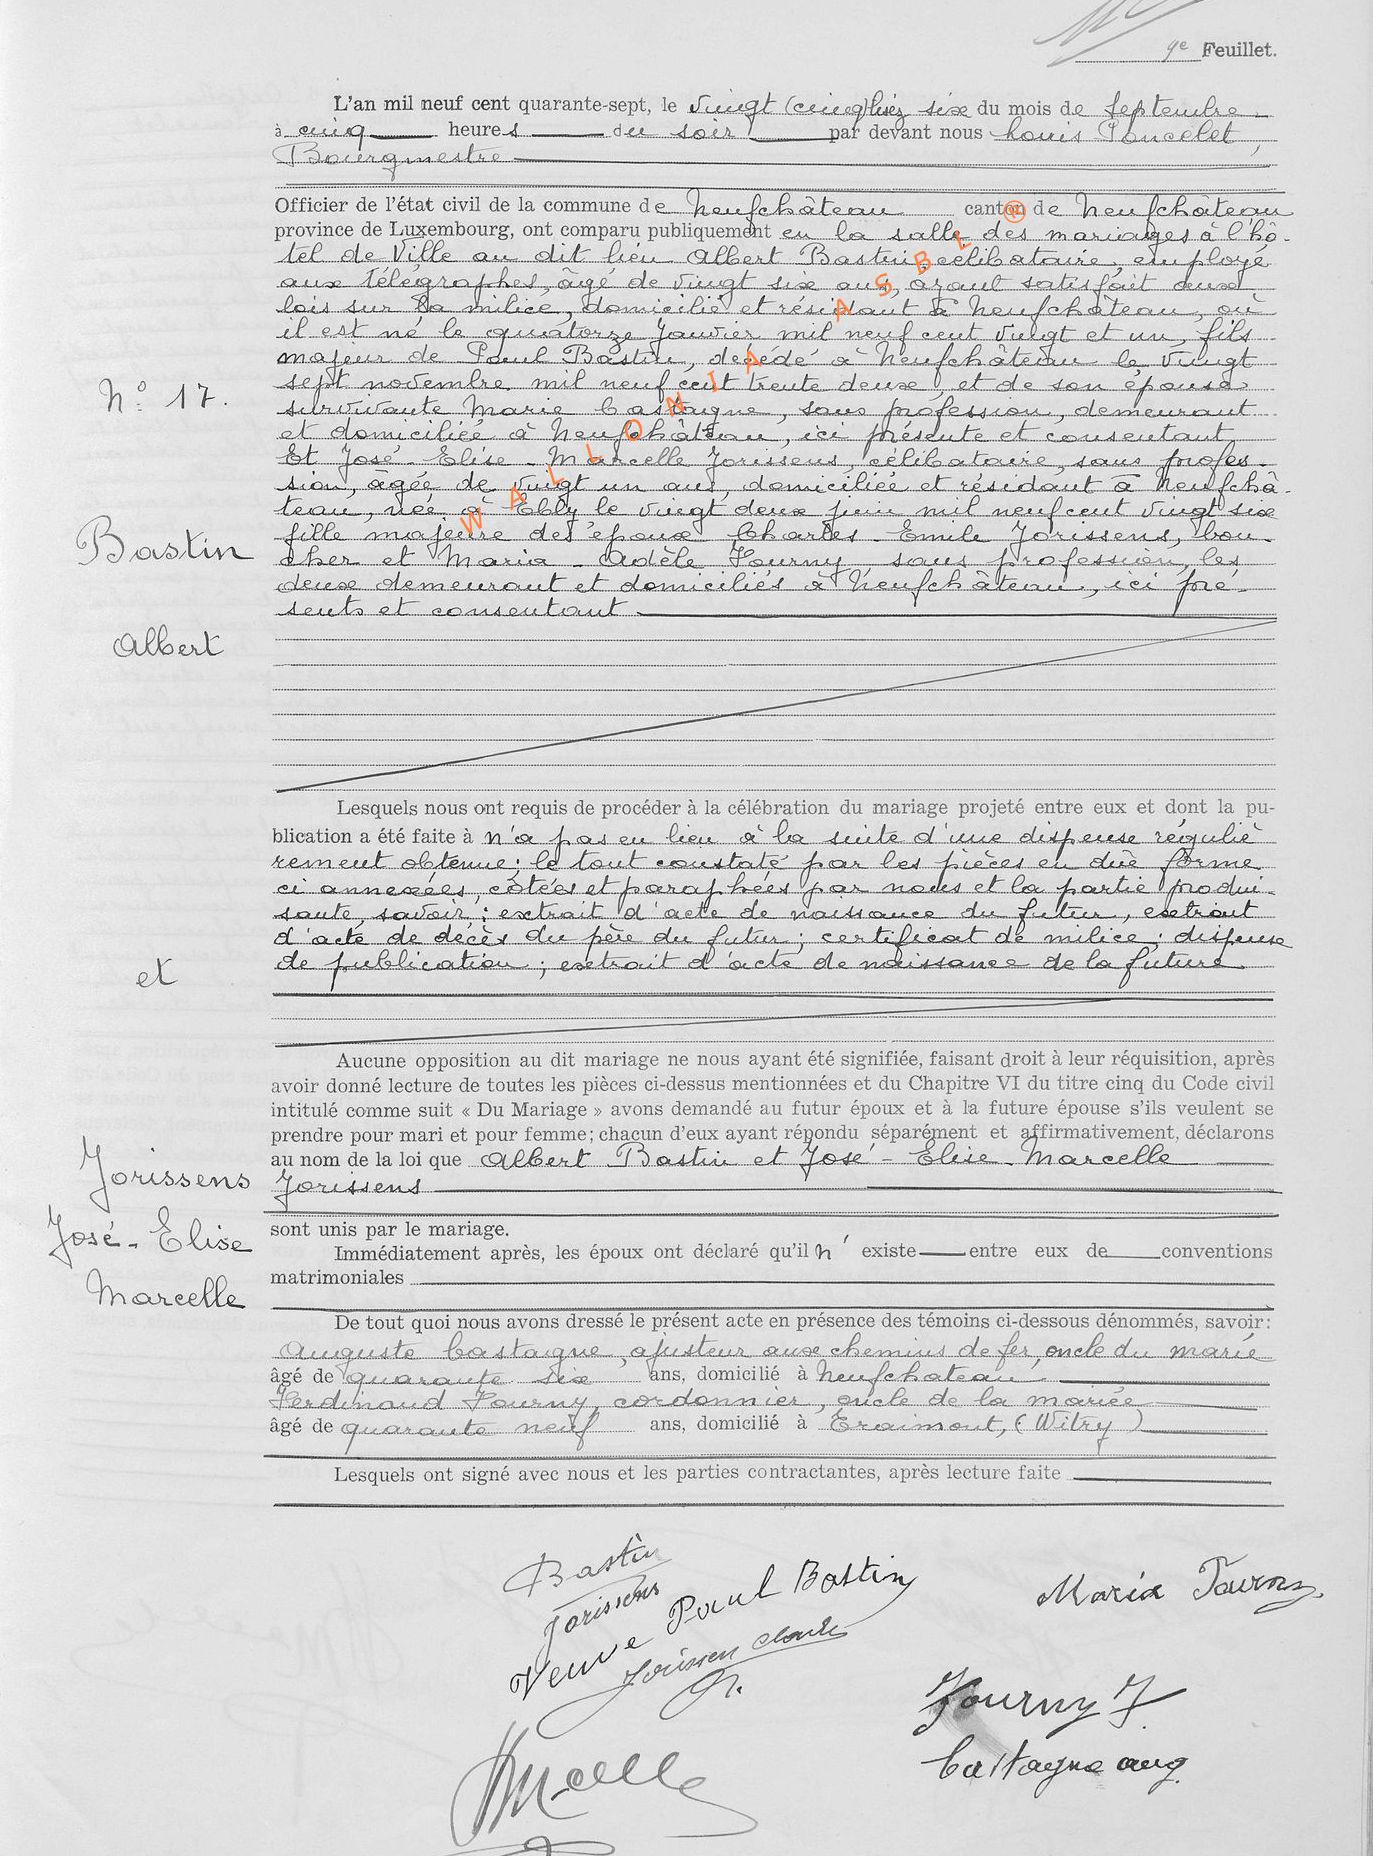 9e Feuillet.
L'an mil neuf cent quarante-sept, le vingt (cinq) lisez six du mois de Septembre
à cinq heures du soir par devant nous Louis Poncelet,
Bourgmestre
Officier de l'état civil de la commune de Neufchâteau canton de Neufchâteau
province de Luxembourg, ont comparu publiquement en la salle des mariages à l'hô-
tel de Ville au dit lieu Albert Bastin, célibataire, employé
aux télégraphes, âgé de vingt six ans, ayant satisfait aux
lois sur la milice, domicilié et résidant à Neufchâteau, où
il est né le quatorze Janvier mil neuf cent vingt et un, fils
majeur de Paul Bastin, décédé à Neufchâteau le vingt
sept novembre mil neuf cent trente deux, et de son épouse
survivante Marie Castaigne, sans profession, demeurant
et domiciliée à Neufchâteau, ici présente et consentant
Et José-Elise-Marcelle Jorissens, célibataire, sans profes-
sion, âgée de vingt un ans, domiciliée et résidant à Neufchâ-
teau, née à Ebly le vingt deux juin mil neuf cent vingt six
fille majeure des époux Charles-Emile Jorissens, bou-
cher et Maria-Adèle Fourny, sans profession, les
deux demeurant et domiciliés à Neufchâteau, ici pré-
sents et consentant
N° 17.
Bastin
Albert
et
Jorissens
José-Elise
Marcelle
WALLONIA ASBL ®
Lesquels nous ont requis de procéder à la célébration du mariage projeté entre eux et dont la pu-
blication a été faite à n'a pas eu lieu à la suite d'une dispense réguliè
rement obtenue; le tout constaté par les pièces en due forme
ci annexées, côtées et paraphées par nous et la partie produi-
sante, savoir: extrait d'acte de naissance du futur, extrait
d'acte de décès du père du futur; certificat de milice; dispense
de publication; extrait d'acte de naissance de la future
Aucune opposition au dit mariage ne nous ayant été signifiée, faisant droit à leur réquisition, après
avoir donné lecture de toutes les pièces ci-dessus mentionnées et du Chapitre VI du titre cinq du Code civil
intitulé comme suit « Du Mariage » avons demandé au futur époux et à la future épouse s'ils veulent se
prendre pour mari et pour femme; chacun d'eux ayant répondu séparément et affirmativement, déclarons
au nom de la loi que Albert Bastin et José-Elise-Marcelle
Jorissens
sont unis par le mariage.
Immédiatement après, les époux ont déclaré qu'il n' existe entre eux de conventions
matrimoniales
De tout quoi nous avons dressé le présent acte en présence des témoins ci-dessous dénommés, savoir:
Auguste Castaigne, ajusteur aux chemins de fer, oncle du marié
âgé de quarante six ans, domicilié à Neufchateau
Ferdinand Fourny, cordonnier, oncle de la mariée
âgé de quarante neuf ans, domicilié à Traimont, (Witry)
Lesquels ont signé avec nous et les parties contractantes, après lecture faite
Bastin
Jorissens
Veuve Paul Bastin
Maria Fourny
Jorissen Charles
Fourny F
Castagne aug